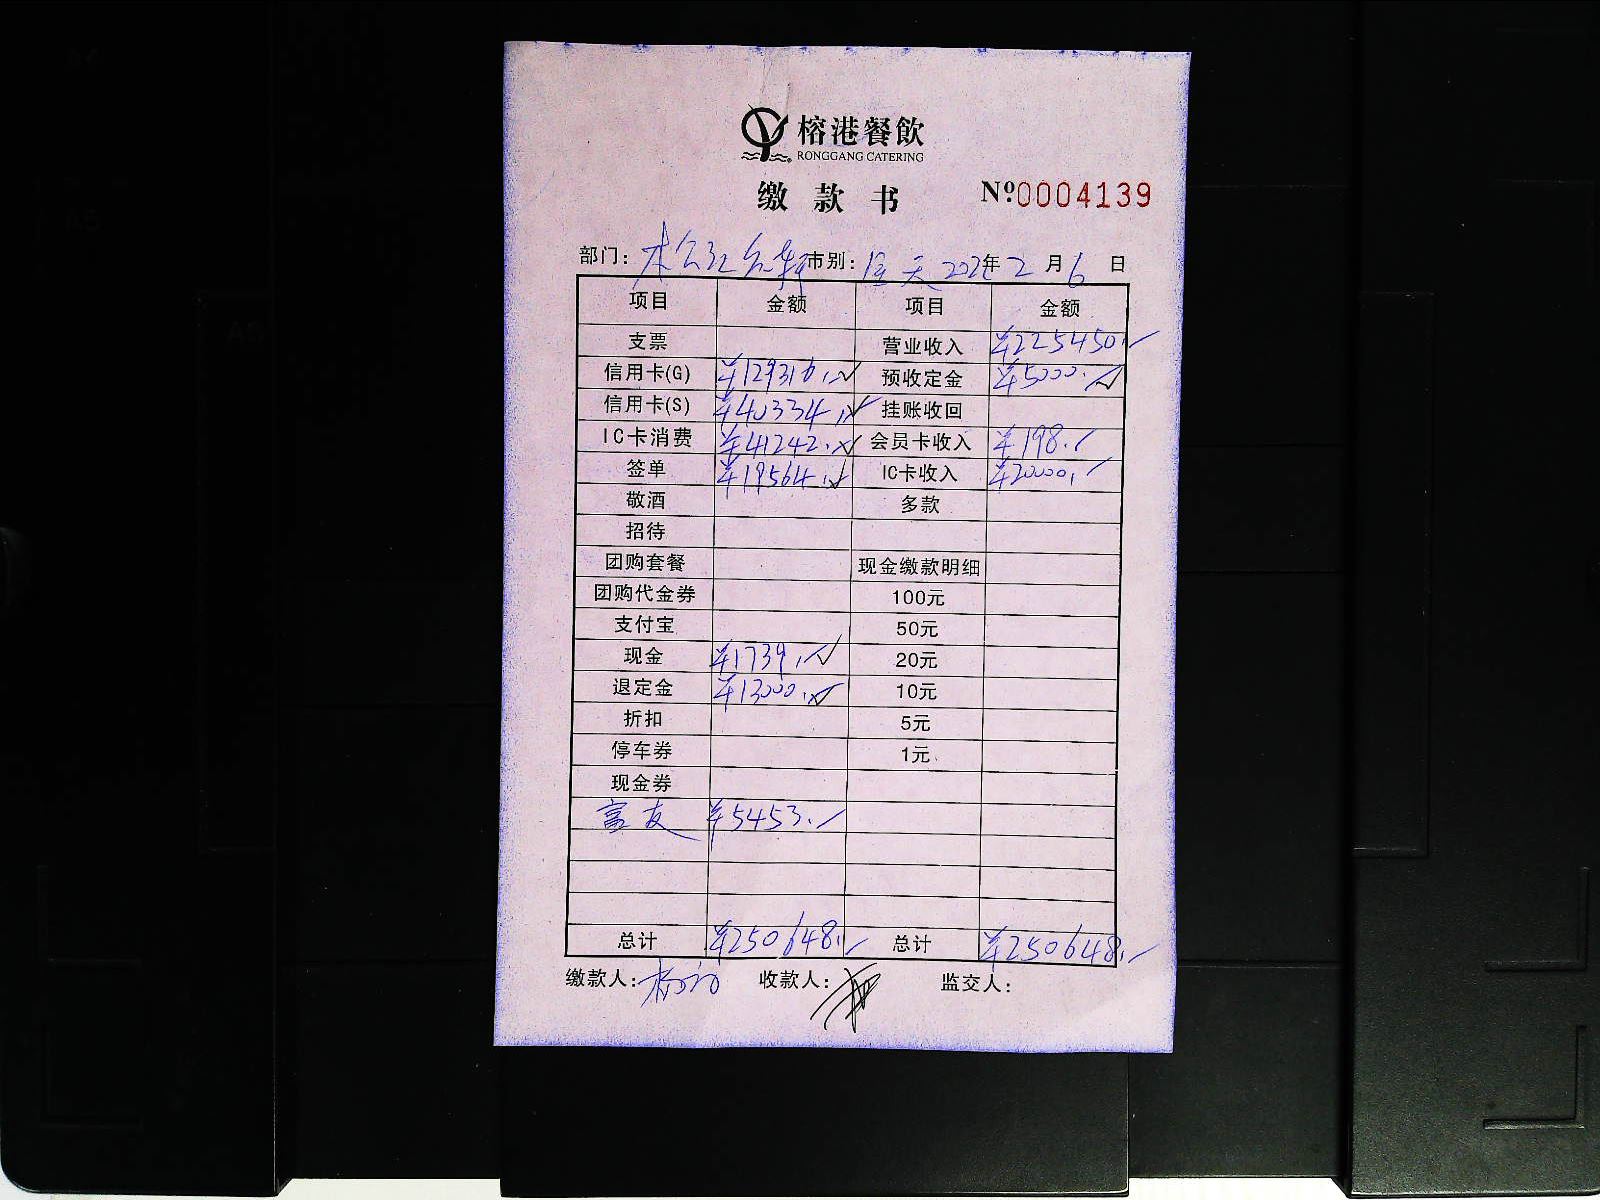 榕港餐飲
RONGGANG CATERING
缴款书 №0004139
部门: 市别: 全天 年 2 月 6 日
项目 金额 项目 金额
支票 营业收入 ¥225450.
信用卡(G) ¥129316. 预收定金 ¥5000.
信用卡(S) ¥40334. 挂账收回
IC卡消费 ¥41242. 会员卡收入 ¥198.
签单 ¥19564. IC卡收入 ¥20000.
敬酒 多款
招待
团购套餐 现金缴款明细
团购代金券 100元
支付宝 50元
现金 ¥1739. 20元
退定金 ¥13000. 10元
折扣 5元
停车券 1元
现金券
富友 ¥5453.
总计 ¥250648. 总计 ¥250648.
缴款人: 收款人: 监交人: